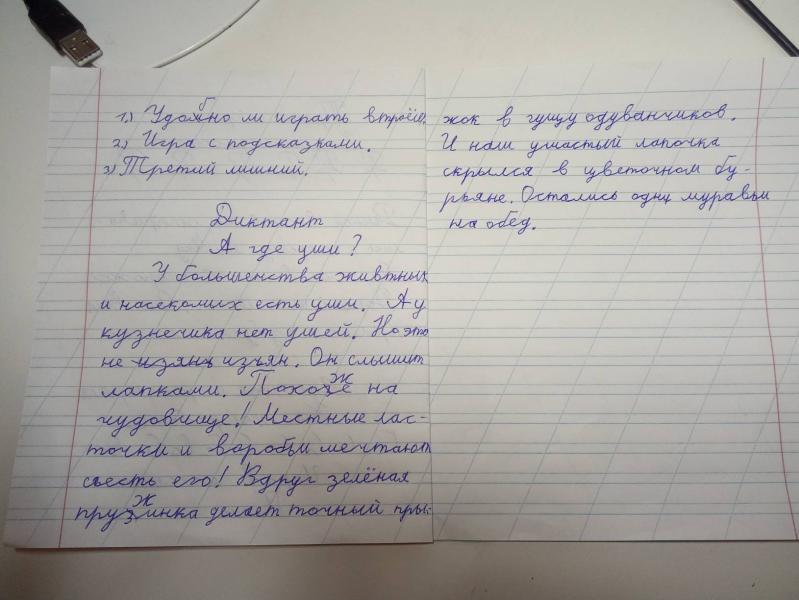 1.) Удобно ли играть втроём.
2.) Игра с подсказками.
3) Третий лишний.
Диктант
А где уши?
У большенства живтных
и насекомих есть уши. А у
кузнечика нет ушей. Но это
не изянц изъян. Он слышит
лапками. Похоже на
чудовище! Местные лас-
точки и воробьи мечтают
съесть его! Вдруг зелёная
пружинка делает точный пры-
жок в гущу одуванчиков.
И наш ушастый лапочка
скрылся в цветочном бу-
рьяне. Остались одни муравьи
на обед.